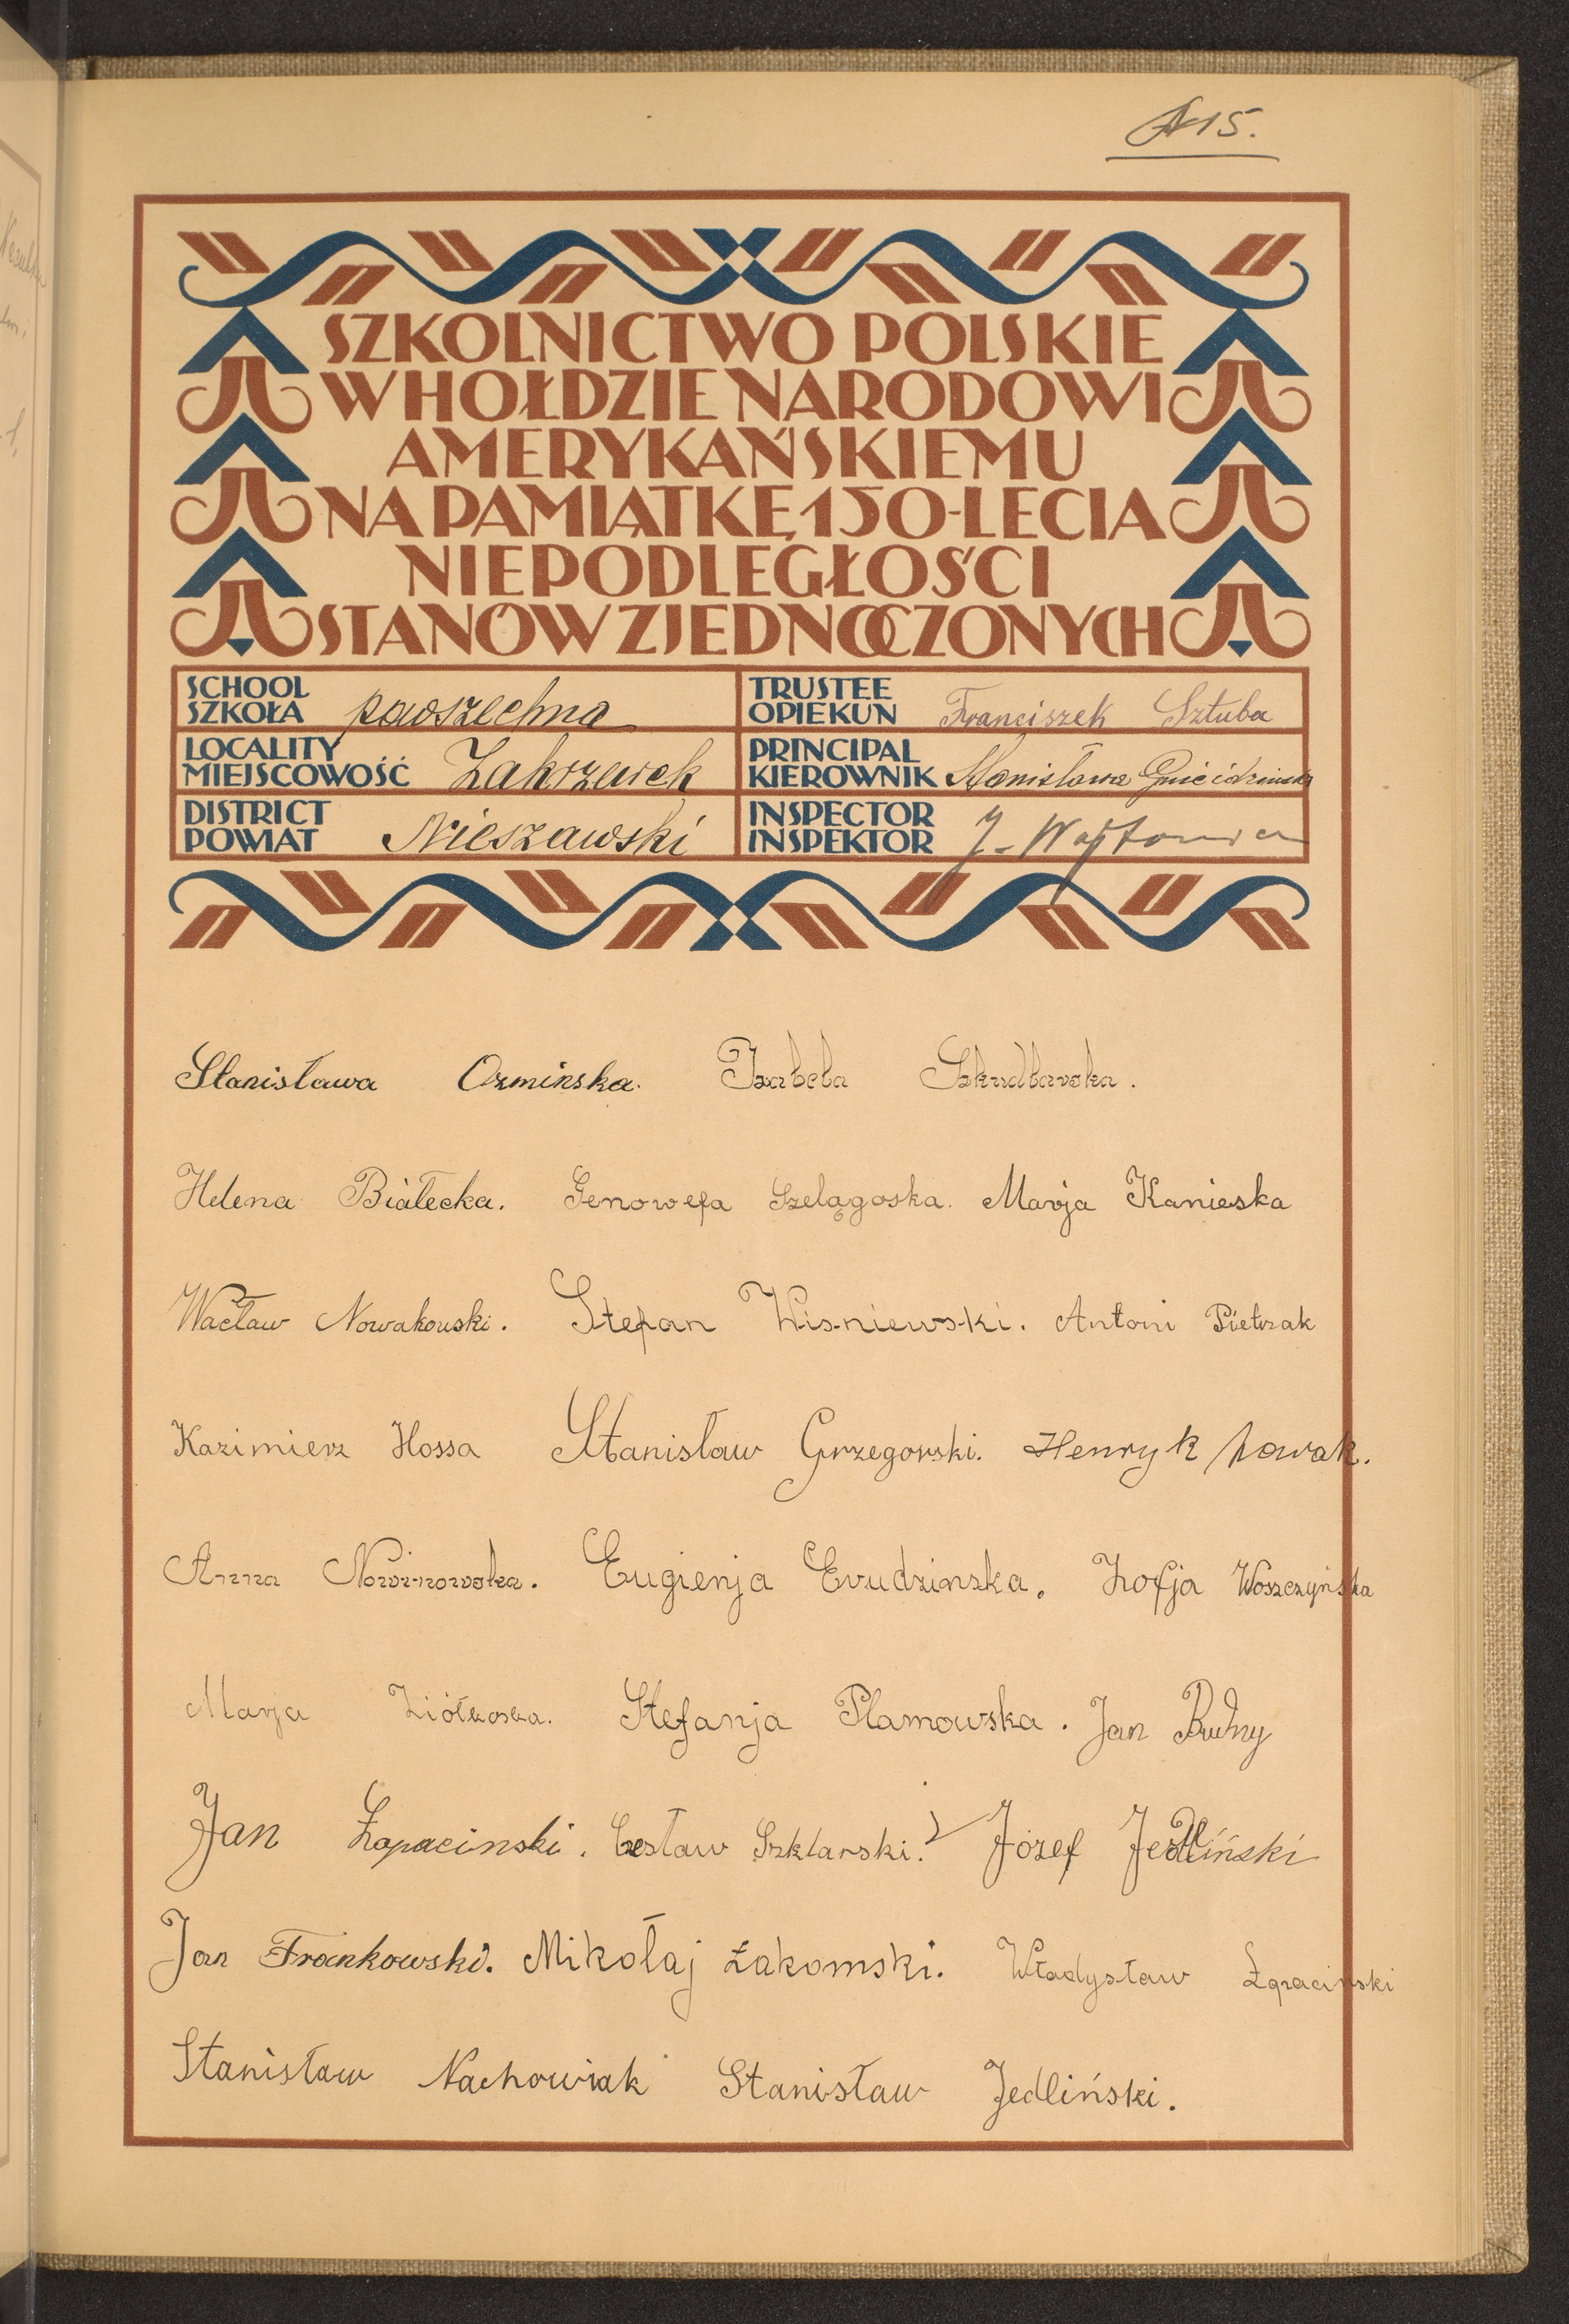 A 15.
SZKOLNICTWO POLSKIE
W HOŁDZIE NARODOWI
AMERYKAŃSKIEMU
NA PAMIĄTKĘ 150-LECIA
NIEPODLEGŁOŚCI
STANÓW ZJEDNOCZONYCH
SCHOOL SZKOŁA powszechna
TRUSTEE OPIEKUN Franciszek Sztuba
LOCALITY MIEJSCOWOŚĆ Zakrzewek
PRINCIPAL KIEROWNIK Stanisława
DISTRICT POWIAT Nieszawski
INSPECTOR INSPEKTOR J.
Stanisława Ozminska. Izabela Szkudlarska.
Helena Białecka. Genowefa Szelągoska. Marja Kanieska
Wacław Nowakowski. Stefan Wisniewski. Antoni Pietrzak
Kazimierz Hossa Stanisław Grzegorski. Henryk Nowak.
Anna Eugienja Zofja Woszczyńska
Marja Ziółkoska. Stefanja Plamowska. Jan
Jan Łapacinski. Czesław Szklarski. Józef Jedliński
Jan Frankowski. Mikołaj Łakomski. Władysław Łapacinski
Stanisław Nachowiak Stanisław Jedliński.